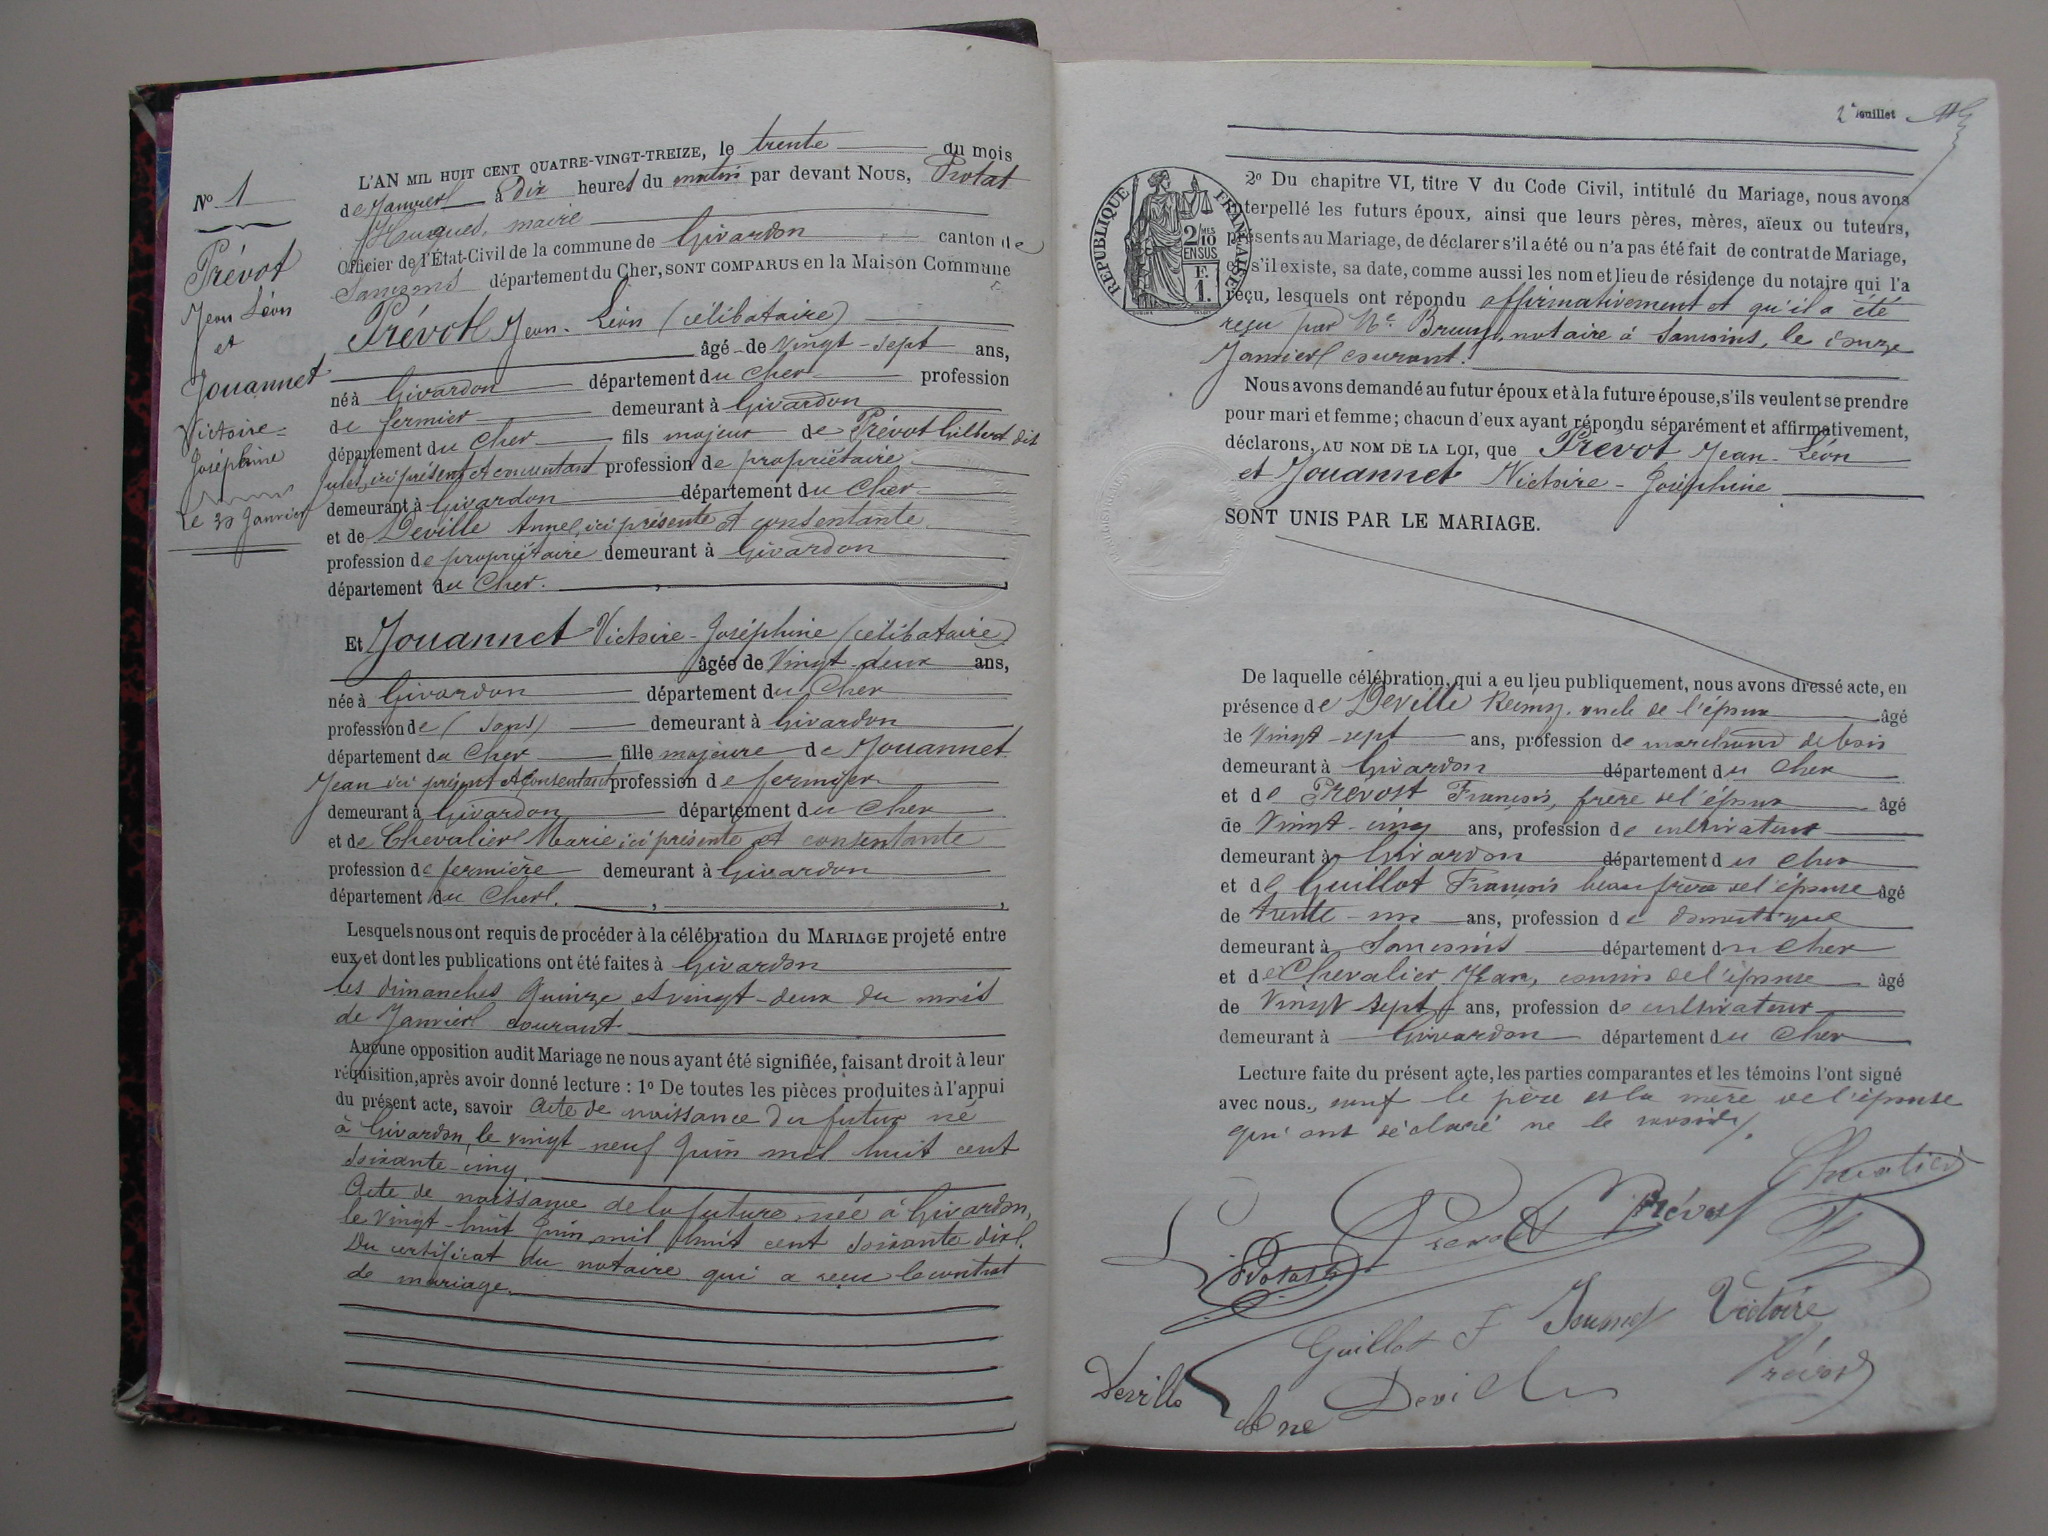 N° 1
Prévot
Jean Léon
et
Jouannet
Victoire-
Joséphine
Le 30 Janvier
L'AN MIL HUIT CENT QUATRE-VINGT-TREIZE, le trente du mois
de Janvier à Dix heures du matin par devant Nous, Protat
Hugues, maire
Officier de l'État-Civil de la commune de Givardon canton de
Sancoins département du Cher, SONT COMPARUS en la Maison Commune
Prévot Jean-Léon (célibataire)
âgé de vingt-sept ans,
né à Givardon département du Cher profession
de fermier demeurant à Givardon
département du Cher fils majeur de Prévot Gilbert dit
Jules, ici présent et consentant profession de propriétaire
demeurant à Givardon département du Cher
et de Deville Anne, ici présente et consentante
profession de propriétaire demeurant à Givardon
département du Cher.
Et Jouannet Victoire-Joséphine (célibataire)
âgée de Vingt-deux ans,
née à Givardon département du Cher
profession de (sans) demeurant à Givardon
département du Cher fille majeure de Jouannet
Jean ici présent et consentant profession de fermier
demeurant à Givardon département du Cher
et de Chevalier Marie ici présente et consentante
profession de fermière demeurant à Givardon
département du Cher.
Lesquels nous ont requis de procéder à la célébration du MARIAGE projeté entre
eux et dont les publications ont été faites à Givardon
les dimanches Quinze et vingt-deux du mois
de Janvier courant
Aucune opposition audit Mariage ne nous ayant été signifiée, faisant droit à leur
réquisition, après avoir donné lecture : 1° De toutes les pièces produites à l'appui
du présent acte, savoir Acte de naissance du futur né
à Givardon, le vingt-neuf Juin mil huit cent
soixante-cinq.
Acte de naissance de la future née à Givardon,
le Vingt-huit Juin mil huit cent soixante dix.
Du certificat du notaire qui a reçu le contrat
de mariage.
2e feuillet
RÉPUBLIQUE FRANÇAISE
2/10 MES
EN SUS
F.
1.
2° Du chapitre VI, titre V du Code Civil, intitulé du Mariage, nous avons
interpellé les futurs époux, ainsi que leurs pères, mères, aïeux ou tuteurs,
présents au Mariage, de déclarer s'il a été ou n'a pas été fait de contrat de Mariage,
et s'il existe, sa date, comme aussi les nom et lieu de résidence du notaire qui l'a
reçu, lesquels ont répondu affirmativement et qu'il a été
reçu par Me notaire à Sancoins, le
Janvier courant.
Nous avons demandé au futur époux et à la future épouse, s'ils veulent se prendre
pour mari et femme ; chacun d'eux ayant répondu séparément et affirmativement,
déclarons, AU NOM DE LA LOI, que Prévot Jean-Léon
et Jouannet Victoire-Joséphine
SONT UNIS PAR LE MARIAGE.
De laquelle célébration, qui a eu lieu publiquement, nous avons dressé acte, en
présence de Deville Rémy, oncle de l'époux âgé
de Vingt-sept ans, profession de marchand de bois
demeurant à Givardon département du Cher
et de Prévost François, frère de l'époux âgé
de Vingt-cinq ans, profession de cultivateur
demeurant à Givardon département du Cher
et de Guillot François beau frère de l'épouse âgé
de trente-un ans, profession de domestique
demeurant à Sancoins département du Cher
et de Chevalier Jean, cousin de l'épouse âgé
de Vingt sept ans, profession de cultivateur
demeurant à Givardon département du Cher
Lecture faite du présent acte, les parties comparantes et les témoins l'ont signé
avec nous, sauf le père et la mère de l'épouse
qui ont déclaré ne le savoir.
Chevalier
Prévot Prévost
Protat
Guillot F Victoire
Prévost
Deville Ane Deville